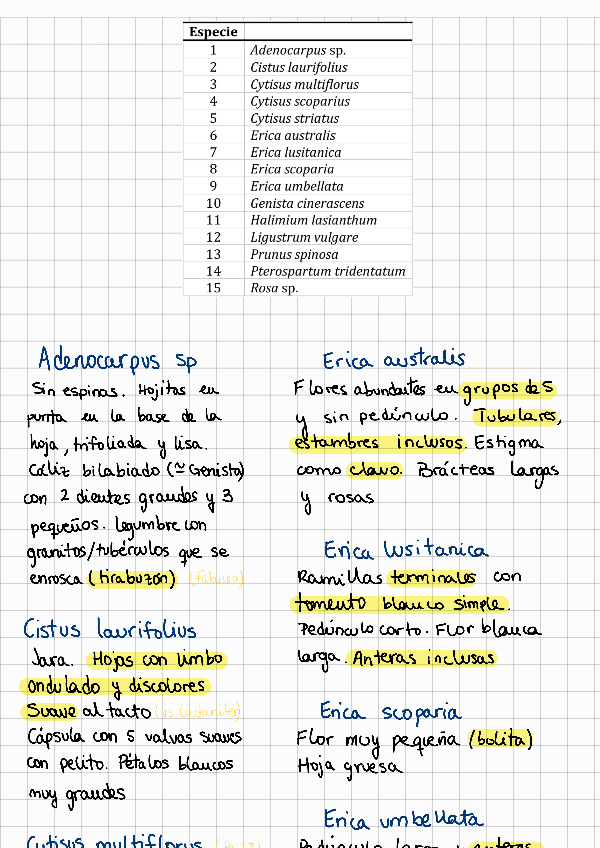 Especie
1 Adenocarpus sp.
2 Cistus laurifolius
3 Cytisus multiflorus
4 Cytisus scoparius
5 Cytisus striatus
6 Erica australis
7 Erica lusitanica
8 Erica scoparia
9 Erica umbellata
10 Genista cinerascens
11 Halimium lasianthum
12 Ligustrum vulgare
13 Prunus spinosa
14 Pterospartum tridentatum
15 Rosa sp.
Adenocarpus sp
Sin espinas. Hojitas en
punta en la base de la
hoja, trifoliada y lisa.
Cáliz bilabiado (≃ Genista)
con 2 dientes grandes y 3
pequeños. Legumbre con
granitos/tubérculos que se
enrosca (tirabuzón)
Cistus laurifolius
Jara. Hojas con limbo
ondulado y discolores
Suave al tacto
Cápsula con 5 valvas suaves
con pelito. Pétalos blancos
muy grandes
Cytisus multiflorus
Erica australis
Flores abundantes en grupos de 5
y sin pedúnculo. Tubulares,
estambres inclusos. Estigma
como clavo. Brácteas largas
y rosas
Erica lusitanica
Ramillas terminales con
tomento blanco simple.
Pedúnculo corto. Flor blanca
larga. Anteras inclusas
Erica scoparia
Flor muy pequeña (bolita)
Hoja gruesa
Erica umbellata
Pedúnculo largo y anteras